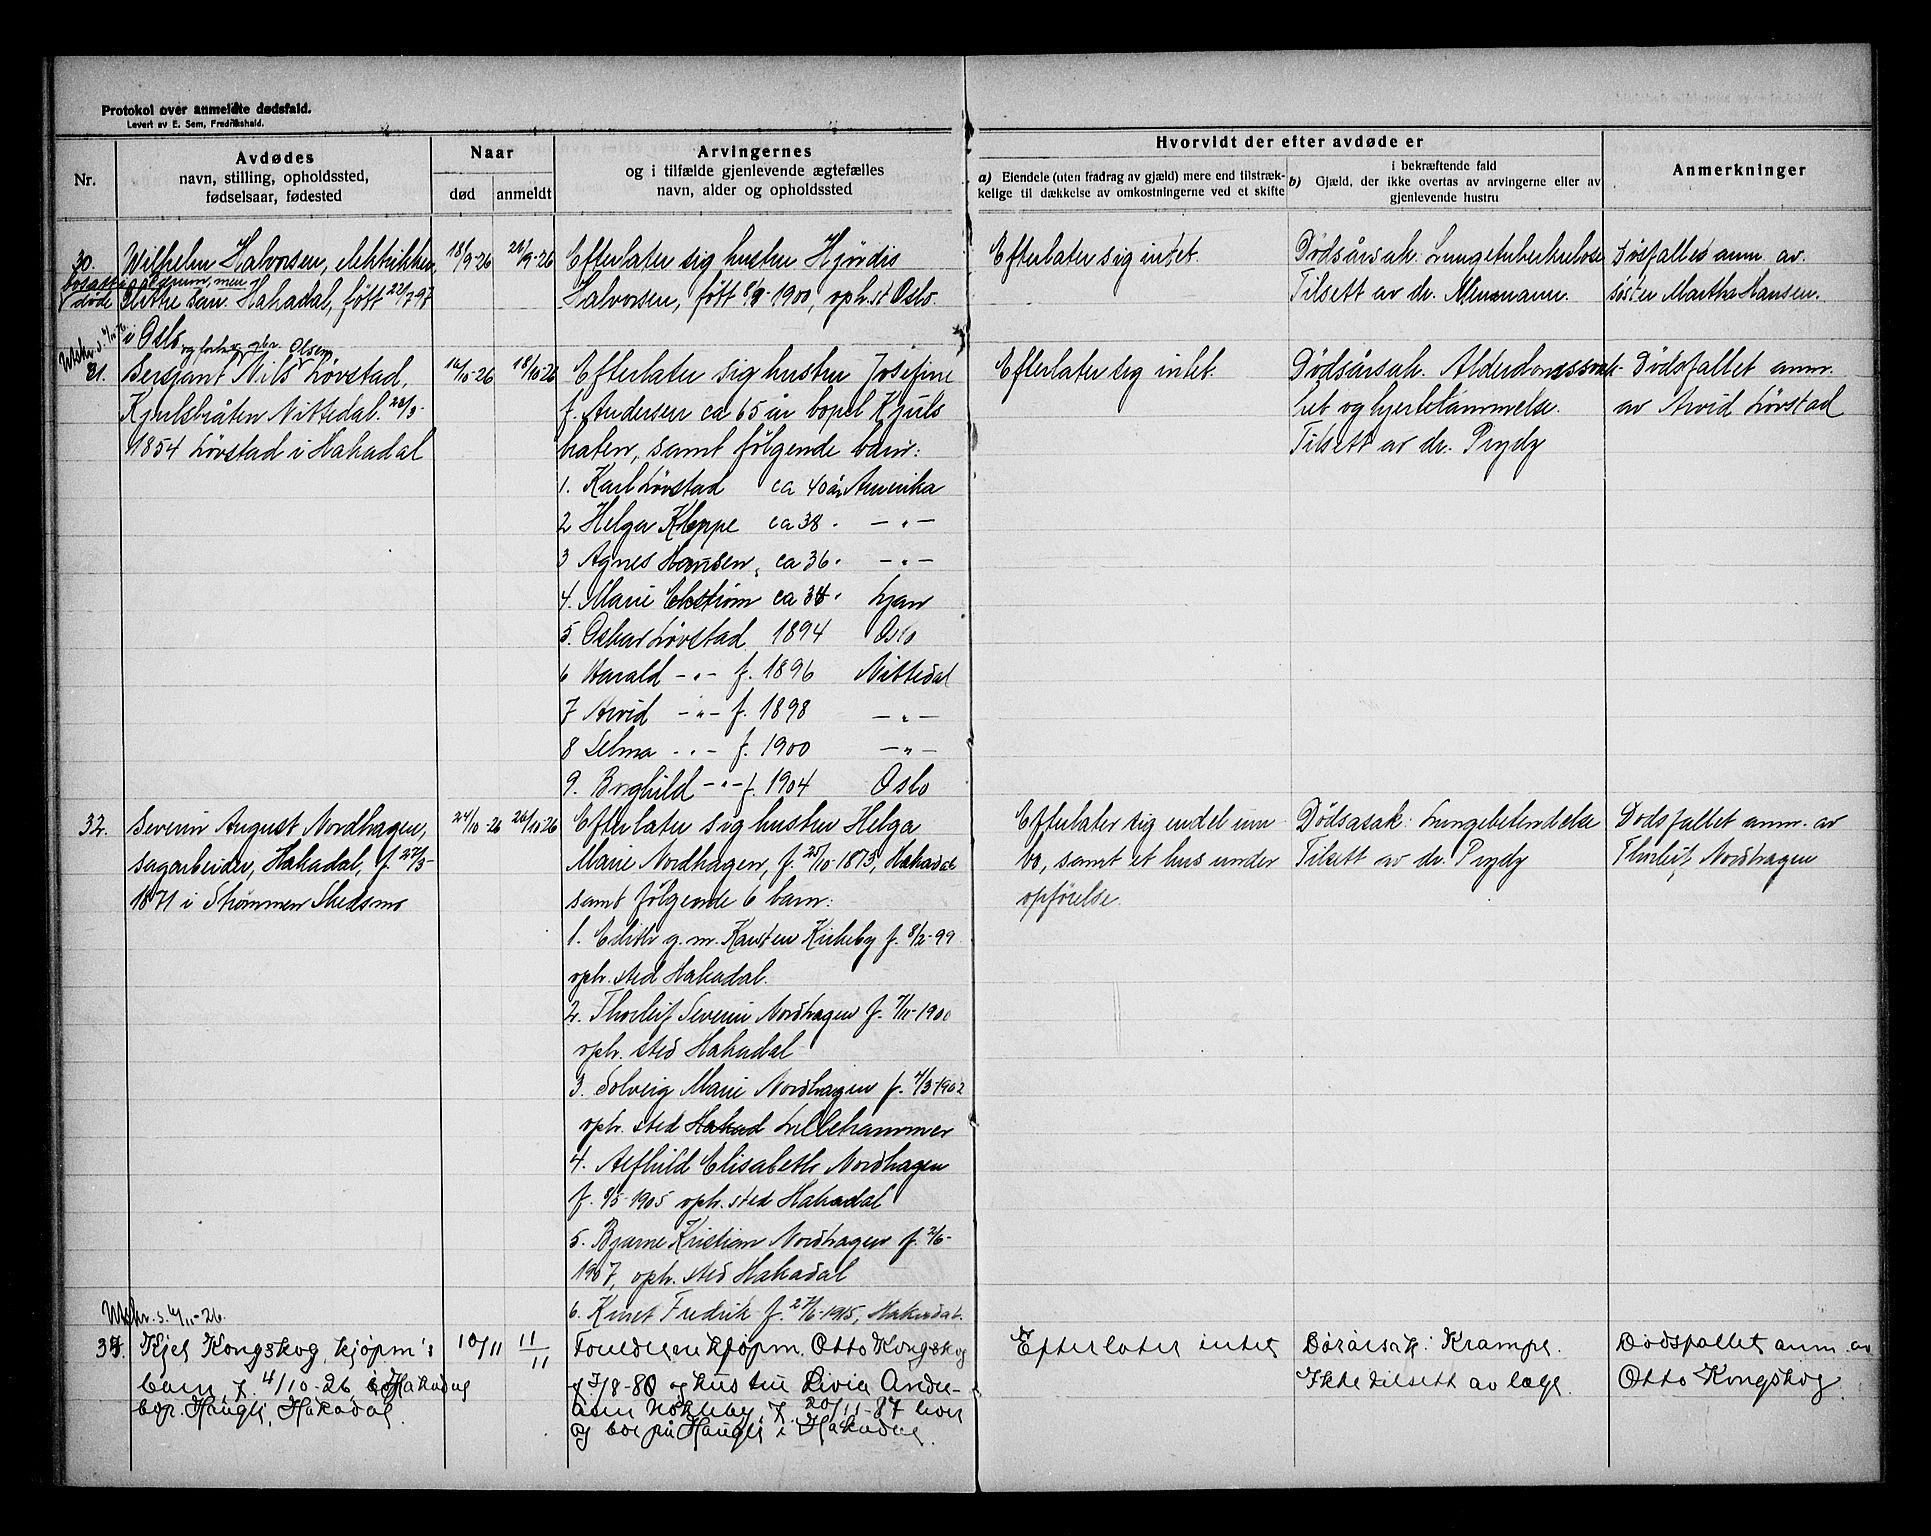 Protokol over anmeldte dødsfald.
Levert av E. Sem, Fredrikshald.
Nr.
Avdødes
navn, stilling, opholdssted,
fødselsaar, fødested
Naar
død
anmeldt
Arvingernes
og i tilfælde gjenlevende ægtefælles
navn, alder og opholdssted
Hvorvidt der efter avdøde er
a) Eiendele (uten fradrag av gjæld) mere end tilstræk-
kelige til dækkelse av omkostningerne ved et skifte
i bekræftende fald
b) Gjæld, der ikke overtas av arvingerne eller av
gjenlevende hustru
Anmerkninger
30.
bosatt i Bærum, men
døde
Wilhelm Halvorsen, elektriker,
Hakadal, født 22/7-97
i Oslo
18/9-26
20/9-26
Efterlater sig hustru Hjørdis
Halvorsen, født 8/8-1900, oph.st Oslo.
Efterlater sig intet.
Dødsårsak: Lungetuberkulose
Tilsett av dr.
Dødsfallet anm. av
søster Martha Hansen.
31.
og forhv. gbr. Olsen
Sersjant Nils Løvstad,
Kjulsbråten Nittedal.
1854 Løvstad i Hakadal
16/10-26
18/10 26
Efterlater sig hustru Josefine
f. Andersen ca 65 år bopel Kjuls
bråten, samt følgende barn:
1. Karl Løvstad ca 40 år Amerika
2 Helga Kleppe ca 38. — " —
3 Agnes Hansen, ca 36. — " —
4. Marie Ekstrøm ca 34. Ljan
5. Oskar Løvstad 1894 Oslo
6 Harald — " — f. 1896 Nittedal
7 Arvid — " — f. 1898 — " —
8 Selma — " — f. 1900 — " —
9. Borghild — " — f. 1904 Oslo
Efterlater sig intet.
Dødsårsak. Alderdomssvak-
het og hjertelammelse.
Tilsett av dr. Prydz
Dødsfallet anm.
av Arvid Løvstad
32.
Severin August Nordhagen,
sagarbeider, Hakadal, f. 27/3-
1871 i Strømmen Skedsmo
24/10-26
26/10 26
Efterlater sig hustru Helga
Marie Nordhagen, f. 25/10-1873, Hakadal
samt følgende 6 barn:
1. Edith g. m. Karsten Kirkeby f. 8/2-99
oph. sted Hakadal.
2. Thorleif Severin Nordhagen f. 7/11-1900
oph. sted Hakadal
3. Solveig Marie Nordhagen f. 4/3-1902
oph. sted Hakad Lillehammer
4. Alfhild Elisabeth Nordhagen
f. 8/5-1905 oph. sted Hakadal
5. Bjarne Kristian Nordhagen f. 2/6-
1907, oph. sted Hakadal
6. Knut Fredrik f. 1915, Hakadal.
Efterlater sig endel inn
bo, samt et hus under
opførelse.
Dødsasak: Lungebetendelse
Tilsett av dr. Prydz
Dødsfallet anm. av
Thorleif Nordhagen
Utskr. s. 11/11-26.
33.
Kjel Kongskog, kjøpm's
barn, f. 4/10-26, i Hakadal
bop. Haugli, Hakadal.
10/11
11/11
Foreldrene kjøpm. Otto Kongskog
f. 7/8-80 og hustru Livia Ander-
sen Nokleby, f. 20/11-87 lever
og bor på Haugli i Hakadal.
Efterlater intet
Dødsårsak: Krampe.
Ikke tilsett av læge.
Dødsfallet anm. av
Otto Kongskog